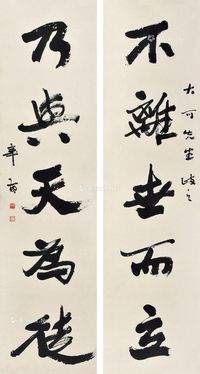 不離世而立
大可先生 政之
乃與天為徒